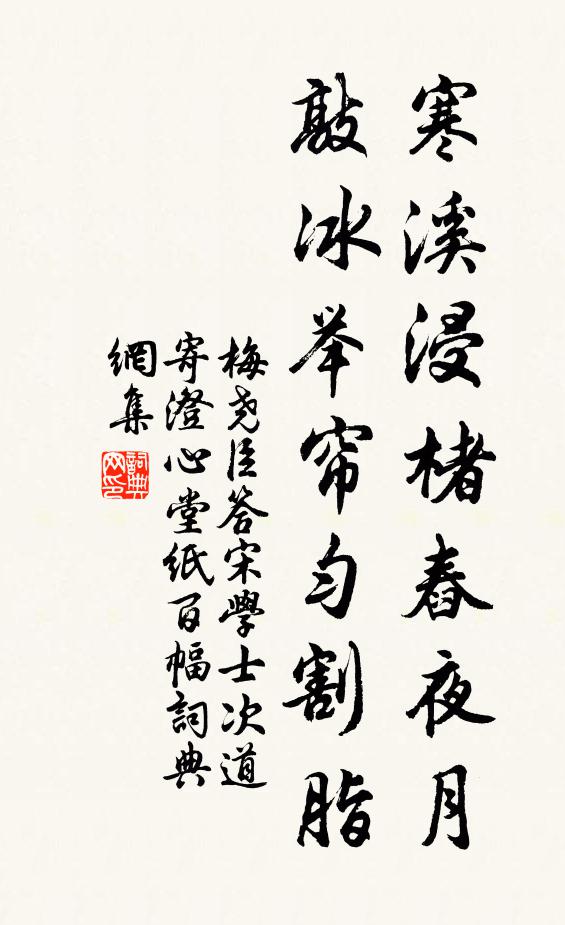 寒溪浸楮舂夜月
敲冰举帘匀割脂
梅尧臣答宋學士次道
寄澄心堂紙百幅詞典
網集
詞典網印